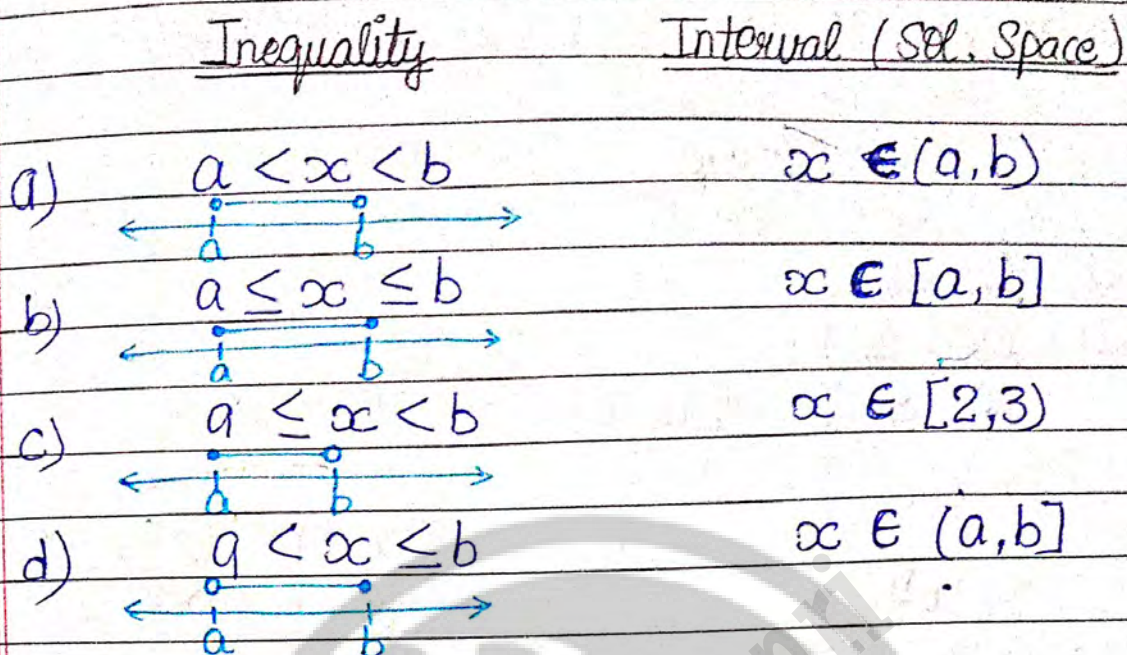 Inequality Interval (Sol. Space)
a) a < x < b x ∈ (a,b)
a b
b) a ≤ x ≤ b x ∈ [a,b]
a b
c) a ≤ x < b x ∈ [2,3)
a b
d) a < x ≤ b x ∈ (a,b]
a b